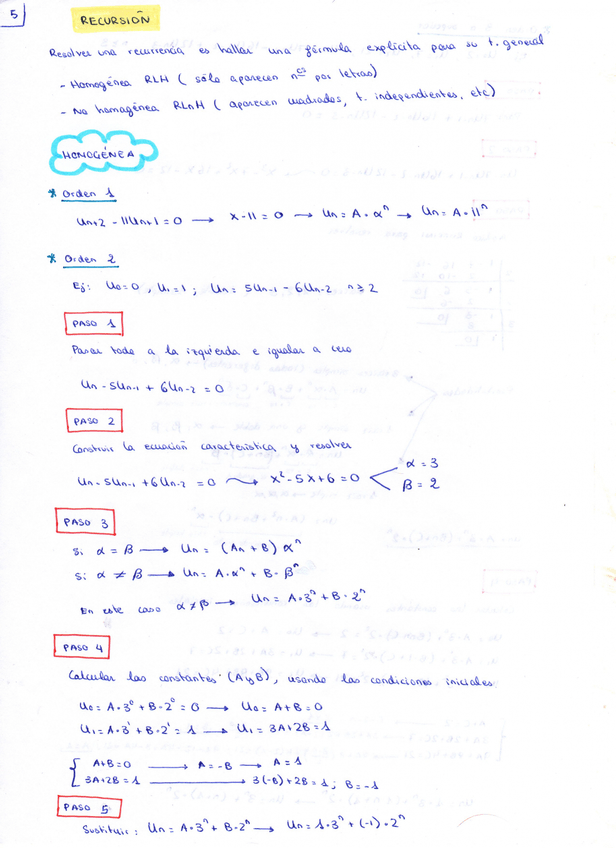 5
RECURSIÓN
Resolver una recurrencia es hallar una fórmula explícita para su t. general
- Homogénea RLH ( sólo aparecen nºs por letras)
- No homogénea RLnH ( aparecen cuadrados, t. independientes, etc)
HOMOGÉNEA
* Orden 1
Un+2 - 11Un+1 = 0 → x-11 = 0 → Un = A·αⁿ → Un = A·11ⁿ
* Orden 2
Ej: U₀=0 , U₁=1 ; Un = 5Un-1 - 6Un-2 n≥2
PASO 1
Pasar todo a la izquierda e igualar a cero
Un - 5Un-1 + 6Un-2 = 0
PASO 2
Construir la ecuación característica y resolver
Un - 5Un-1 + 6Un-2 = 0 → x² - 5x + 6 = 0 < α = 3
β = 2
PASO 3
Si α = β → Un = (An + B) αⁿ
Si α ≠ β → Un = A·αⁿ + B·βⁿ
En este caso α≠β → Un = A·3ⁿ + B·2ⁿ
PASO 4
Calcular las constantes (A y B), usando las condiciones iniciales
U₀ = A·3⁰ + B·2⁰ = 0 → U₀ = A+B = 0
U₁ = A·3¹ + B·2¹ = 1 → U₁ = 3A+2B = 1
{ A+B=0 → A=-B → A=1
3A+2B=1 → 3(-B)+2B=1 ; B=-1
PASO 5
Sustituir: Un = A·3ⁿ + B·2ⁿ → Un = 1·3ⁿ + (-1)·2ⁿ